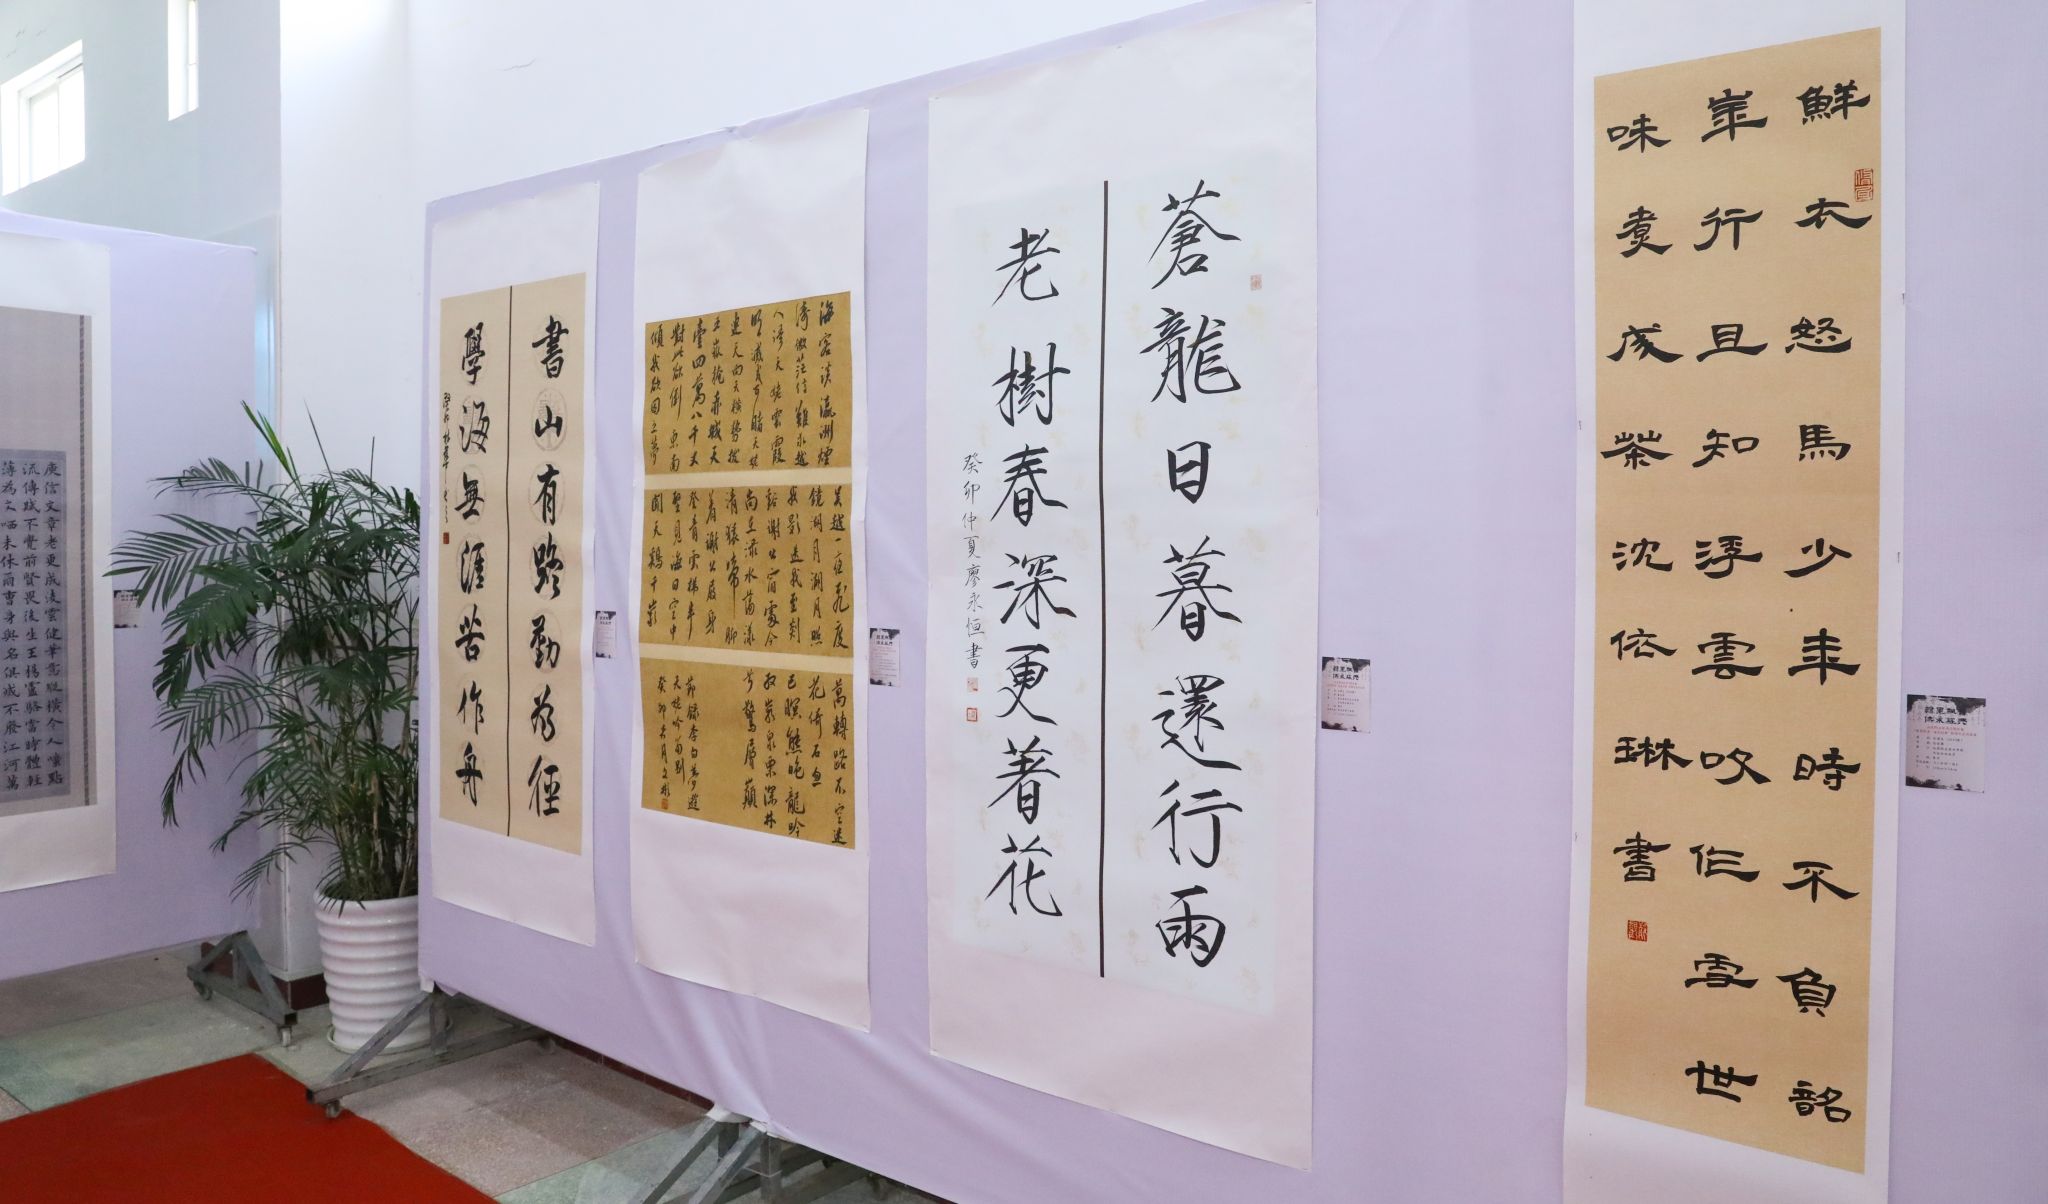 庾信文章老更成凌雲健筆意縱橫今人嗤點
流傳賦不覺前賢畏後生王楊盧駱當時體輕
薄為文哂未休爾曹身與名俱滅不廢江河萬
書山有路勤為徑
學海無涯苦作舟
海客談瀛洲煙
濤微茫信難求越
人語天姥雲霞
明滅或可睹天姥
連天向天橫勢拔
五嶽掩赤城天
臺四萬八千丈
對此欲倒東南
傾我欲因之夢
吳越一夜飛度
鏡湖月湖月照
我影送我至剡
谿謝公宿處今
尚在淥水蕩漾
清猿啼腳
著謝公屐身
登青雲梯半
壁見海日空中
聞天雞千巖
萬轉路不定迷
花倚石忽
已暝熊咆龍吟
殷巖泉栗深林
兮驚層巔
節錄李白夢遊
天姥吟留別
蒼龍日暮還行雨
老樹春深更著花
癸卯仲夏廖永恒書
鮮衣怒馬少年時不負韶
華行且知浮雲吹作雪世
味煮成茶沈依琳書